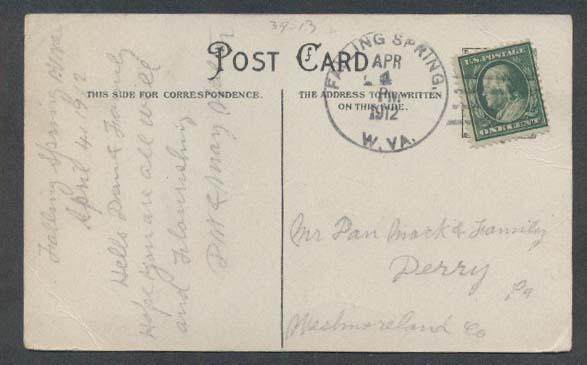 39-13
POST CARD
THIS SIDE FOR CORRESPONDENCE.
THE ADDRESS TO BE WRITTEN
ON THIS SIDE.
FALLING SPRING,
APR
4
PM
1912
W. VA.
U.S. POSTAGE
ONE CENT
Falling Spring W.Va.
April 4. 1912
Hello Dan & Family
Hope you are all well
and Flourishing
& May
Mr Dan Mack & Family
Derry
Pa
Westmoreland Co